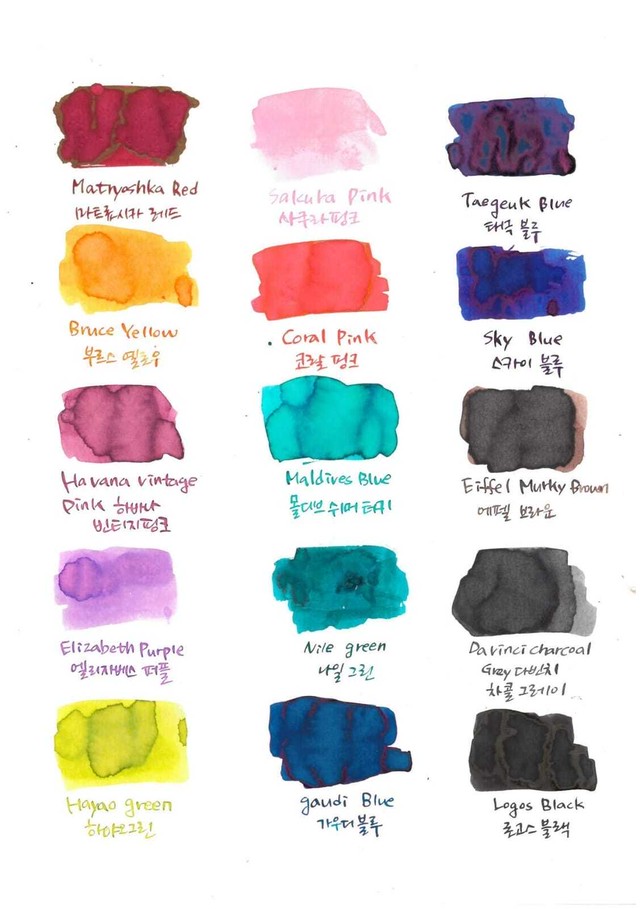 Matryoshka Red
마트료시카 레드
Sakura Pink
사쿠라 핑크
Taegeuk Blue
태극 블루
Bruce Yellow
부르스 옐로우
Coral Pink
코랄 핑크
Sky Blue
스카이 블루
Havana vintage
Pink 하바나
빈티지핑크
Maldives Blue
몰디브 쉬머 터키
Eiffel Murky Brown
에펠 브라운
Elizabeth Purple
엘리자베스 퍼플
Nile green
나일 그린
Davinci charcoal
Gray 다빈치
차콜 그레이
Hayao green
하야오그린
gaudi Blue
가우디블루
Logos Black
로고스 블랙